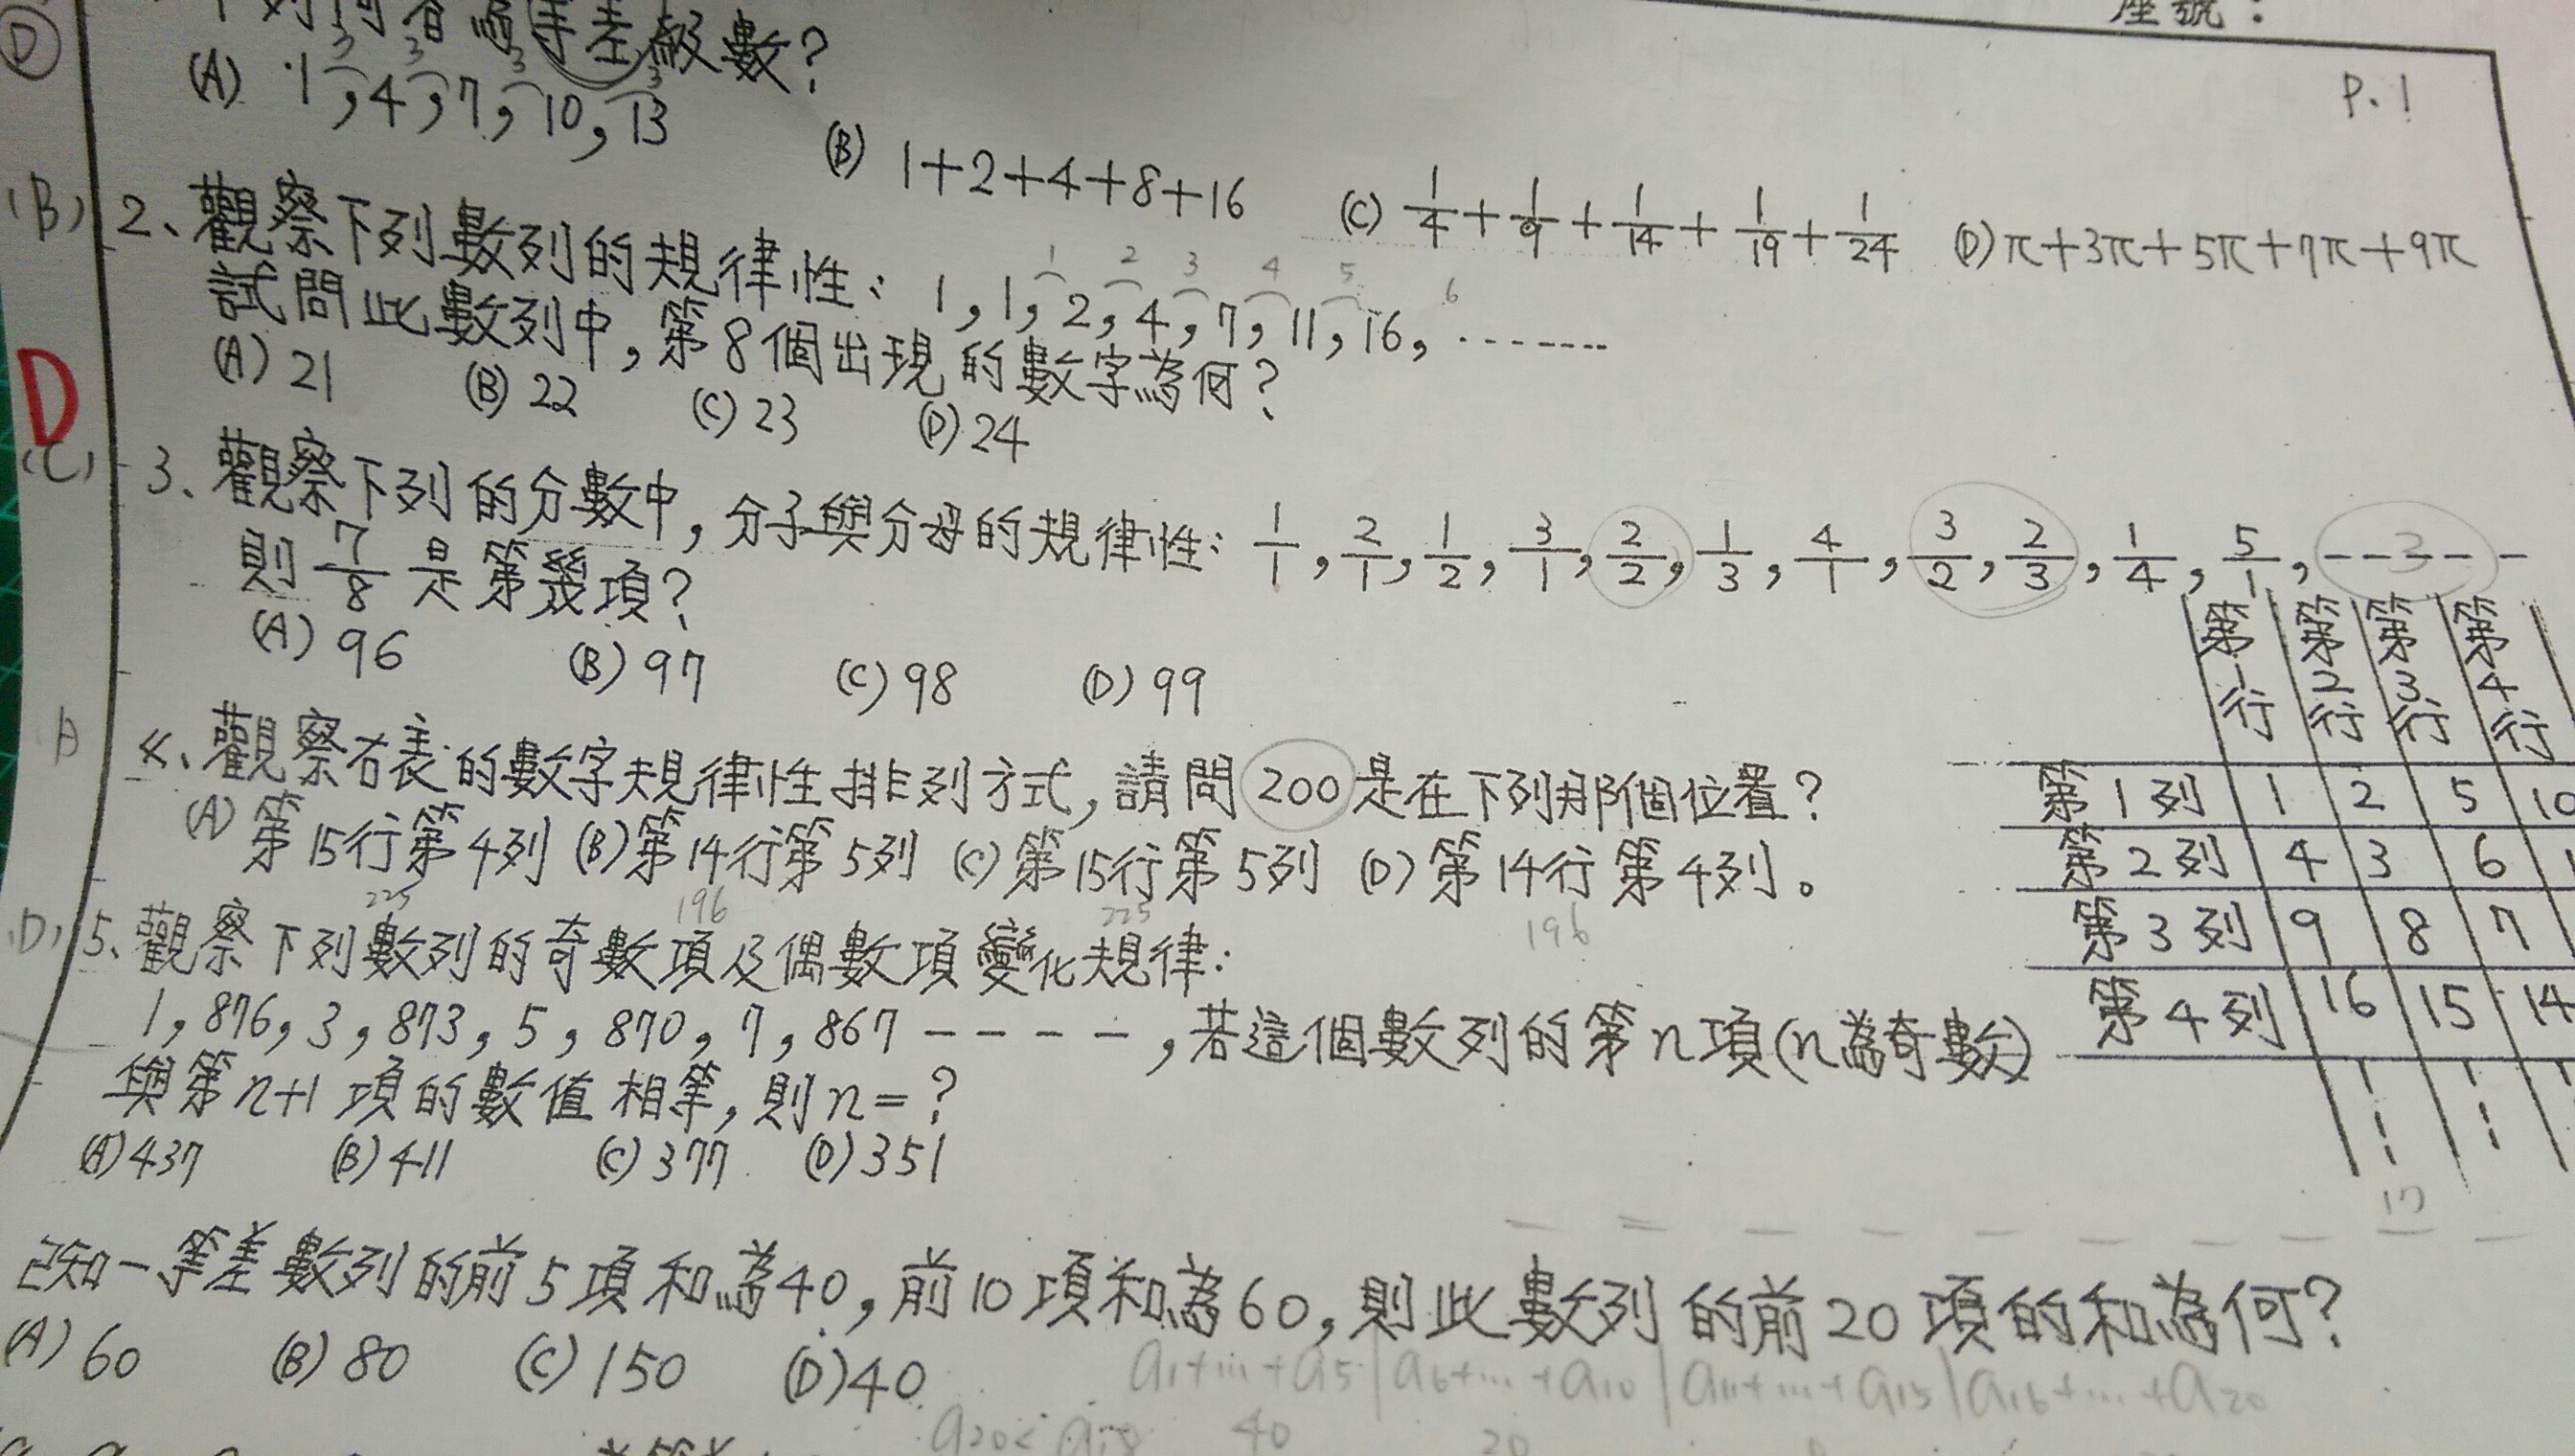 座號：
P.1
D
等差級數?
3 3 3 3
(A) 1,4,7,10,13
(B) 1+2+4+8+16
(C) 1/4+1/9+1/14+1/19+1/24
(D) π+3π+5π+7π+9π
(B) 2、觀察下列數列的規律性：1,1,2,4,7,11,16,……
1 2 3 4 5 6
試問此數列中,第8個出現的數字為何?
(A) 21 (B) 22 (C) 23 (D) 24
D
(C) 3、觀察下列的分數中,分子與分母的規律性：1/1,2/1,1/2,3/1,2/2,1/3,4/1,3/2,2/3,1/4,5/1,-----
則7/8是第幾項?
(A) 96 (B) 97 (C) 98 (D) 99
4、觀察右表的數字規律性排列方式,請問200是在下列那個位置?
(A) 第15行第4列 (B) 第14行第5列 (C) 第15行第5列 (D) 第14行第4列。
225 196 225 196
第1行 第2行 第3行 第4行
第1列 1 2 5 10
第2列 4 3 6
第3列 9 8 7
第4列 16 15 14
(D) 5、觀察下列數列的奇數項及偶數項變化規律：
1,876,3,873,5,870,7,867-----,若這個數列的第n項(n為奇數)
與第n+1項的數值相等,則n=?
(A) 437 (B) 411 (C) 377 (D) 351
已知一等差數列的前5項和為40,前10項和為60,則此數列的前20項的和為何?
(A) 60 (B) 80 (C) 150 (D) 40
a1+…+a5|a6+…+a10|a11+…+a15|a16+…+a20
40 20